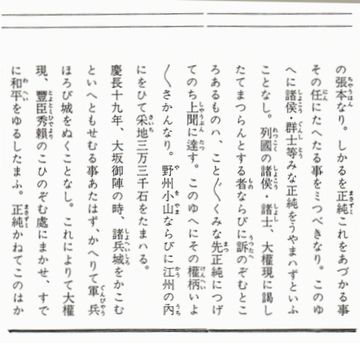 の張本なり。しかるを正純これをあづかる事
その任にたへたる事をミつべきなり。このゆ
へに諸侯・群士等みな正純をうやまハずといふ
ことなし。列國の諸侯、諸士、大權現に謁し
たてまつらんとする者ならびに訴のぞむとこ
ろあるものハ、こと〴〵くみな先正純につげ
てのち上聞に達す。このゆへにその權柄いよ
〳〵さかんなり。野州小山ならびに江州の內
にをひて采地三万三千石をたまハる。
慶長十九年、大坂御陣の時、諸兵城をかこむ
といへともせむる事あたはず、かへりて軍兵
ほろび城をぬくことなし。これによりて大權
現、豐臣秀賴のこひのぞむ處にまかせ、すで
に和平をゆるしたまふ。正純かねてこのはか